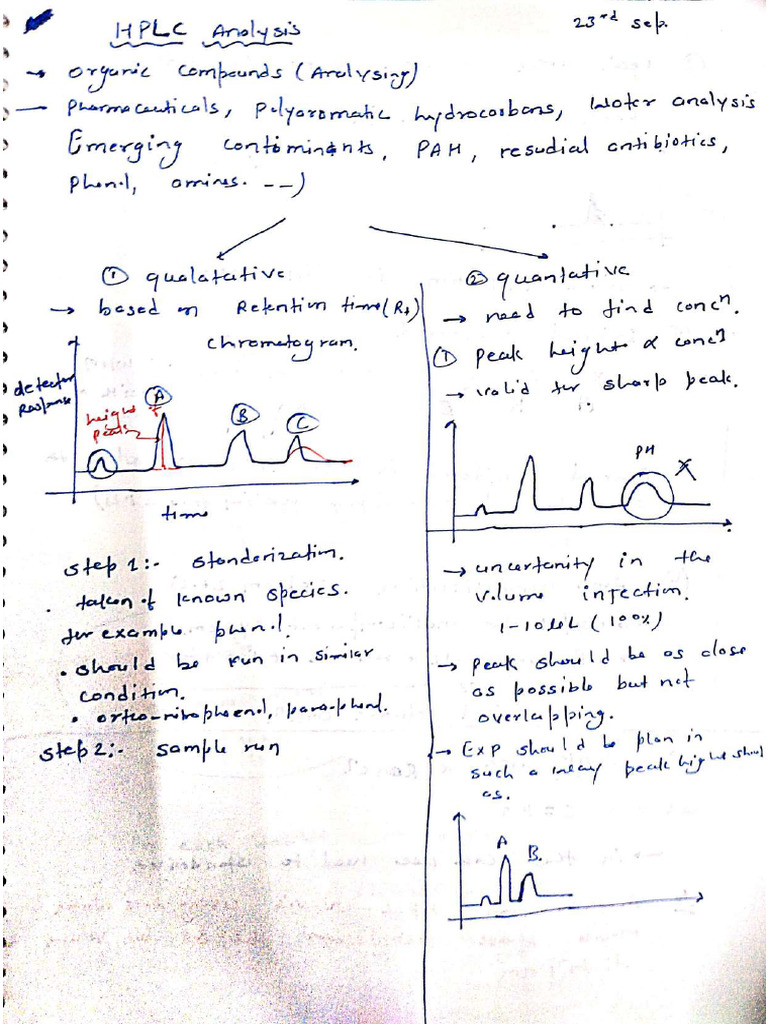 HPLC Analysis
23rd sep.
→ Organic compounds (Analysing)
— Pharmaceuticals, Polyaromatic hydrocarbons, Water analysis
Emerging contaminants, PAH, resudial antibiotics,
phenol, amines. --)
① qualatative
→ based on Retention time (Rt)
chromatogram.
detector
Response
height of
peak
A
B
C
time
Step 1:- standerization.
• taken of known species.
for example phenol.
• should be run in similar
condition.
• orto-nitrophoenol, para-phenol.
Step 2:- sample run
② quantative
→ need to find concn.
① peak height α concn
→ valid for sharp peak.
PH
X
→ uncertenity in the
volume injection.
1-10 µL (100%)
→ peak should be as close
as possible but not
overlapping.
→ Exp should be plan in
such a way peak hight should
as.
A
B.